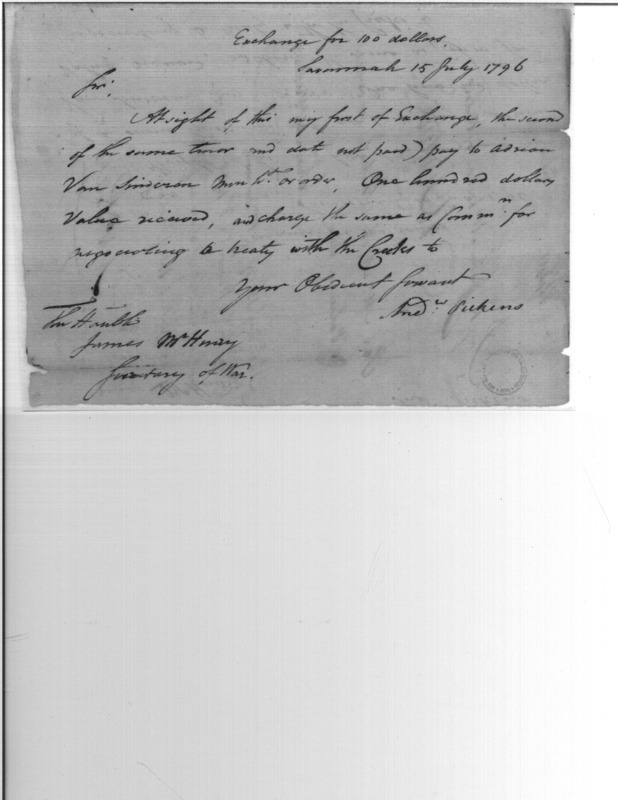 Exchange for 100 dollars.
Savannah 15 July 1796
Sir,
At sight of this my first of Exchange, the second
of the same tenor and date not paid) pay to Adrian
Van Sinderen or order, One hundred dollars
Value received, and charge the same as Commr. for
negociating a treaty with the Creeks to
Your Obedient Servant
Andw. Pickens
The Honble
James McHenry
Secretary of War.